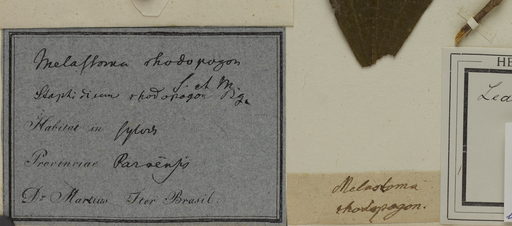 Melastoma rhodopogon
S. et M.
Staphidium rhodopogon
Habitat in sylvis
Provinciae Paraënsis
Dr Martius Iter Brasil.
Melastoma
rhodopogon.
HE
Lea